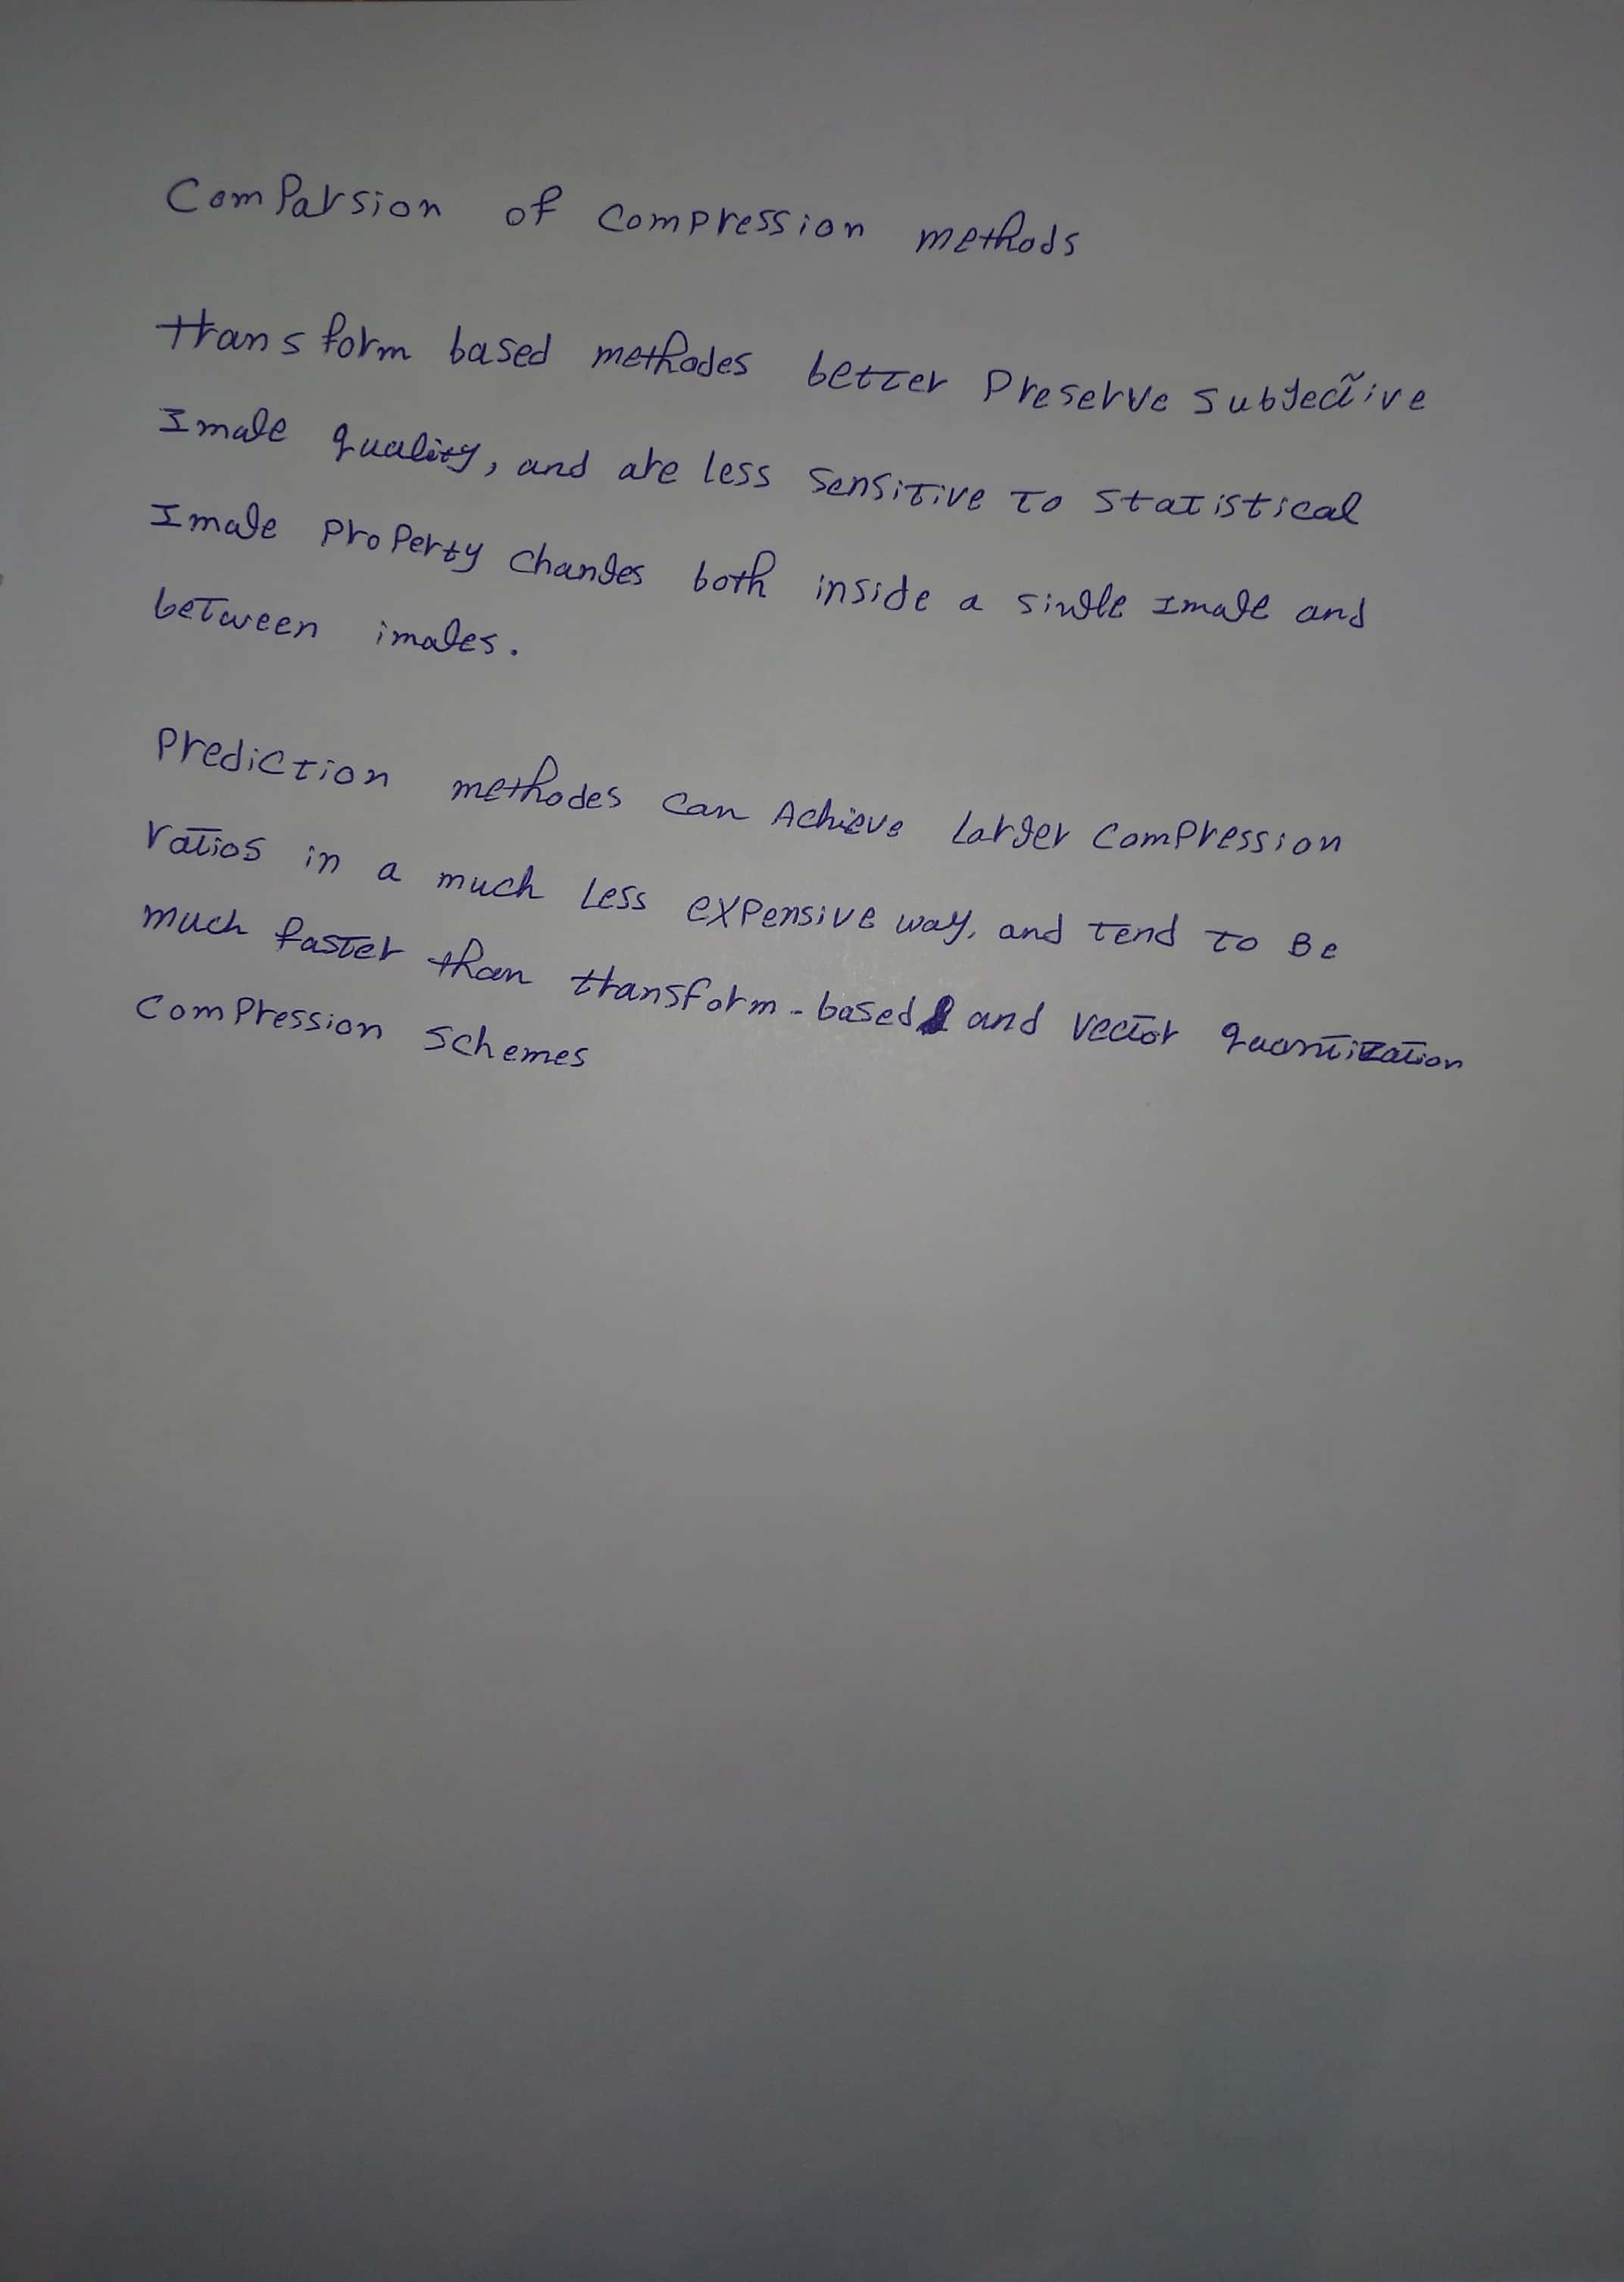 Comparsion of compression methods
transform based methodes better Preserve subjective
Image quality, and are less sensitive to statistical
Image Property changes both inside a single Image and
between images.
Prediction methodes can Achieve Larger compression
ratios in a much Less expensive way, and tend to Be
much faster than transform-based and vector quantization
Compression schemes